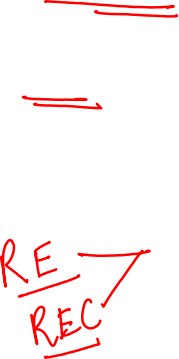 RE
REC